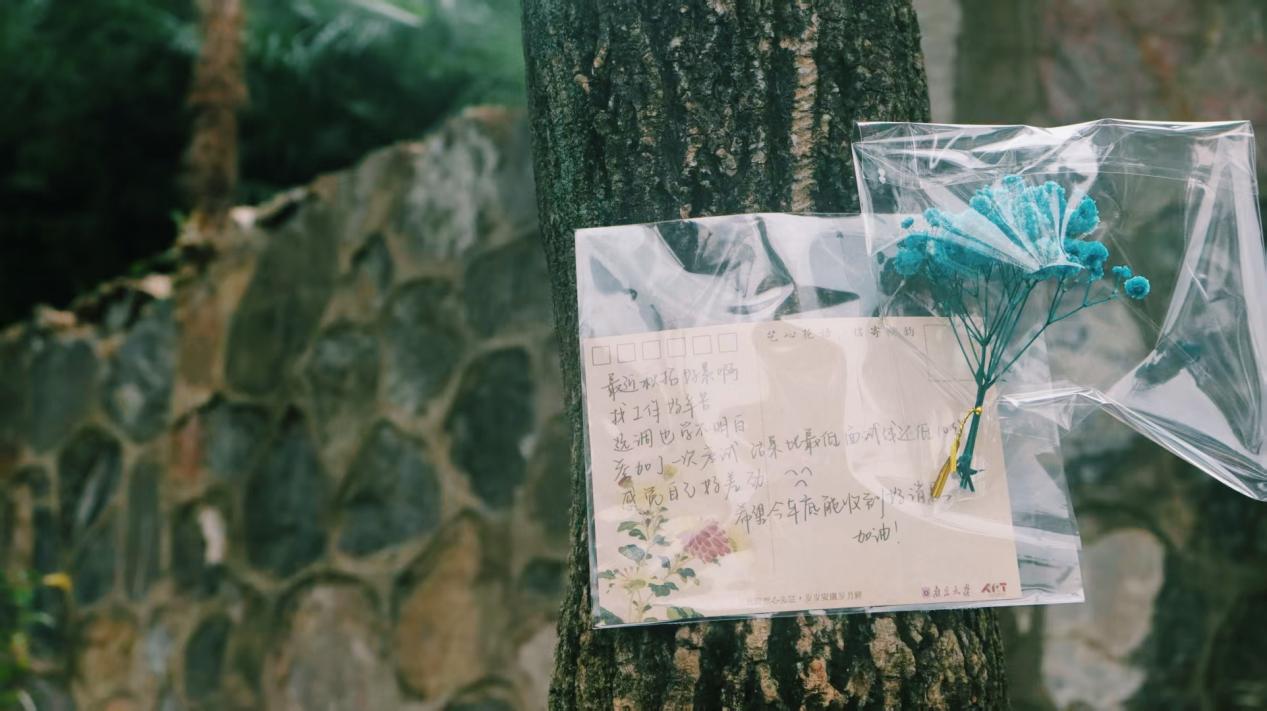 最近秋招好累啊
找工作好辛苦
选调也学不明白
参加了一次考试 结果比最低面试线还低10分
感觉自己好差劲
希望今年底能收到好消息
加油!
南京大学